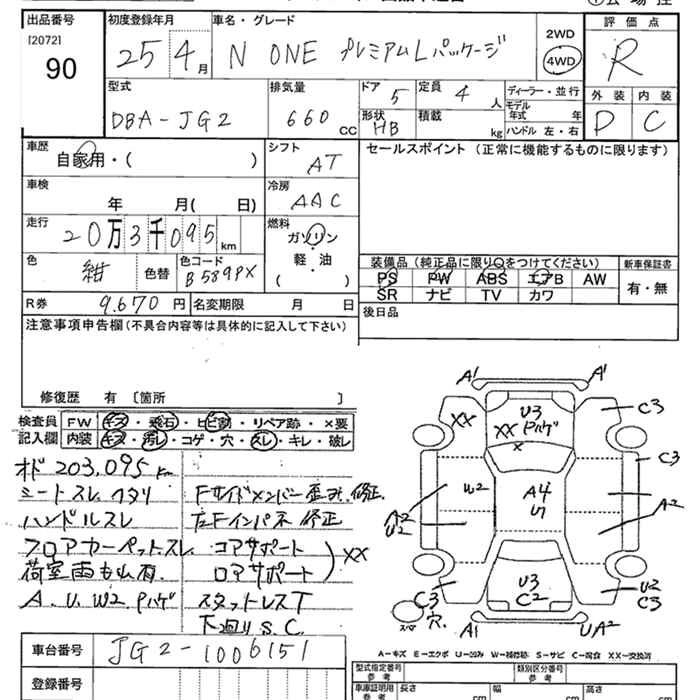 出品番号 初度登録年月 車名・グレード 2WD 評価点
[2072]
90 25 4月 N ONE プレミアムLパッケージ 4WD R
型式 排気量 ドア 5 定員 4人 ディーラー・並行 外装 内装
DBA-JG2 660 CC 形状 HB 積載 kg モデル年式 年 D C
ハンドル 左・右
車歴 シフト セールスポイント(正常に機能するものに限ります)
自家用・( ) AT
車検 冷房
年 月( 日) AAC
走行 燃料
20万3千095km ガソリン
軽・油
( )
色 紺 色替 色コード B589PX
装備品(純正品に限り○をつけてください) 新車保証書
PS PW ABS エアB AW 有・無
SR ナビ TV カワ
R券 9.670円 名変期限 月 日
後日品
注意事項申告欄(不具合内容等は具体的に記入して下さい)
修復歴 有 〔箇所 〕
検査員 FW キズ・飛石・ヒビ割・リペア跡・×要
記入欄 内装 キズ・汚レ・コゲ・穴・スレ・キレ・破レ
オド 203,095km
シートスレ ヘタリ Fサイドメンバー歪み.修正
ハンドルスレ 左Fインパネ修正
フロアカーペットスレ コアサポート
荷室雨もれ有. ロアサポート XX
A.U.W2.Pハゲ スタットレスT
下廻りS.C.
A1 A1
XX U3 C3
XX Pハゲ
×
C3
W2 A4
U1
A2
U2
A2
U3
C2
C3
穴.
U2
C3
スペア A1 UA2
A-キズ E-エクボ U-凹み W-補修跡 S-サビ C-腐食 XX-交換済
車台番号 JG2-1006151
型式指定番号 参考 類別区分番号 参考
登録番号 車庫証明用 参考 長さ cm 幅 cm 高さ cm